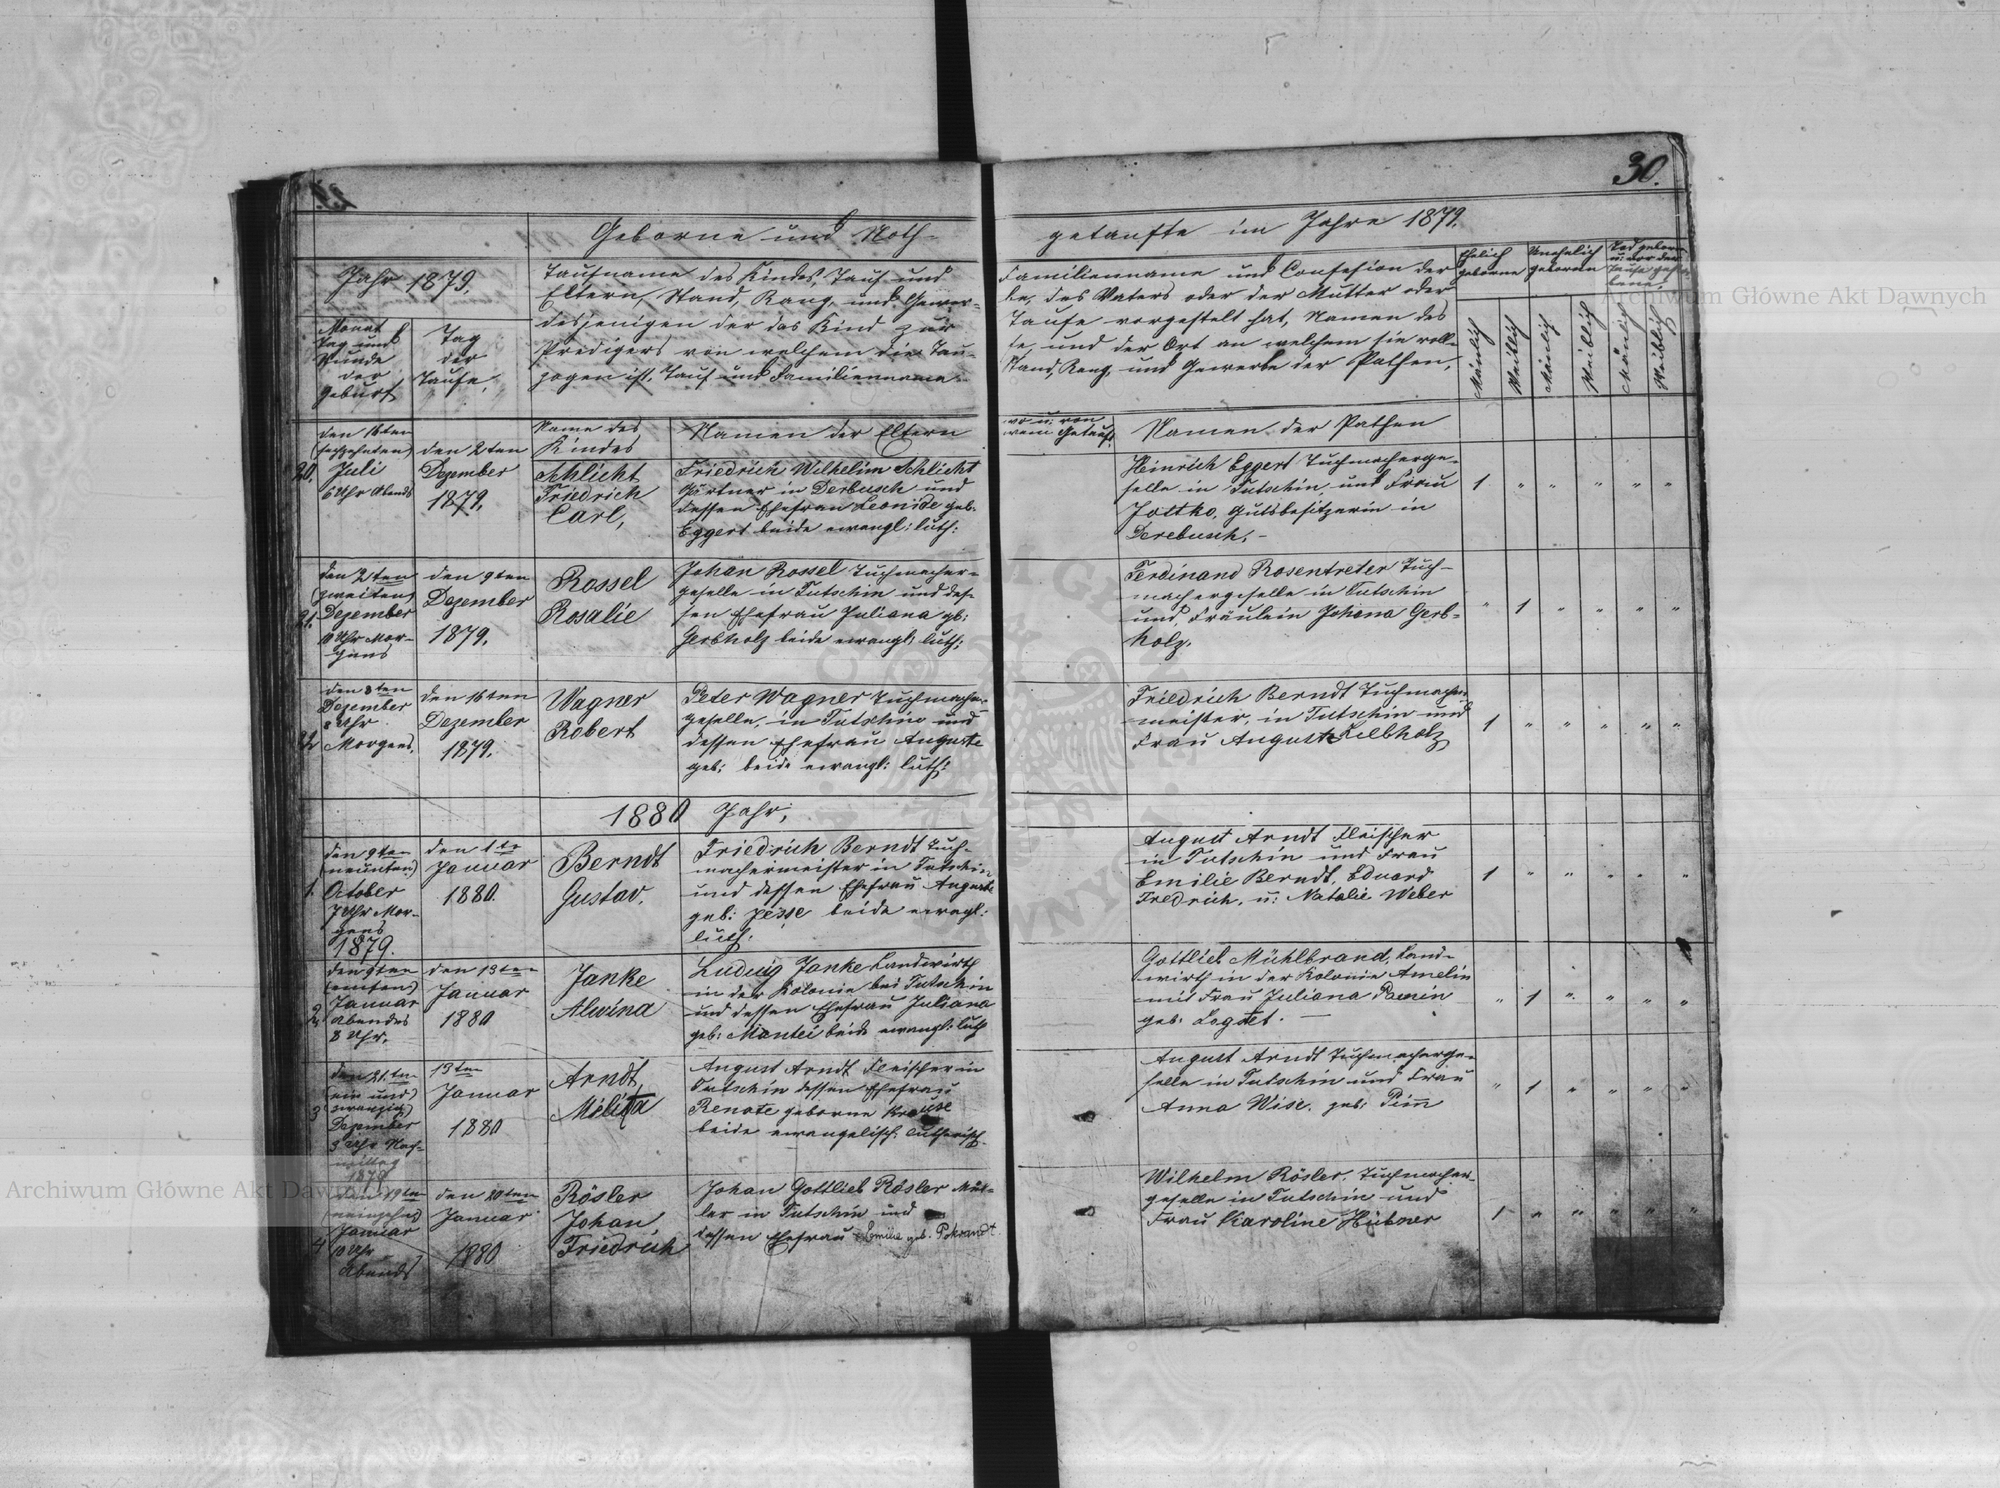 30.
Geborne und Noth-
getaufte im Jahre 1879.
Jahr 1879.
Monat
Tag und
Stunde
der
Geburt
Tag
der
Taufe.
Taufname des Kindes, Tauf und
Eltern, Stand, Rang, und Gewer-
desjenigen der das Kind zur
Predigers von welchem die Tau-
zogen ist. Tauf und Familienname
Familienname und Confesion der
be, des Vaters oder der Mutter oder
Taufe vorgestelt hat, Namen des
fe, und der Ort an welchem sie voll-
Stand, Rang, und Gewerbe der Pathen,
Ehelich
geborne
Unehelich
geboren
Tod geborn
u. vor der
Taufe
Mänlich
Weiblich
Mänlich
Weiblich
Mänlich
Weiblich
Name des
Kindes
Namen der Eltern
wo u. von
wem Getauft
Namen der Pathen
20.
den 16ten
(sechzehnten)
Juli
6 Uhr Abends
den 2ten
Dezember
1879.
Schlicht
Friedrich
Carl,
Friedrich Wilhelm Schlicht
Gärtner in Derbusch und
dessen Ehefrau Leonide geb.
Eggert beide ewangl: luth:
Heinrich Eggert Tuchmacherge-
selle in Tutschin, und Frau
Jottko, Gutsbesitzerin in
Derebusch, -
1 " " " " "
21.
den 2ten
(zweiten)
Dezember
10 Uhr Mor-
gens
den 9ten
Dezember
1879,
Rossel
Rosalie
Johan Rossel Tuchmacher-
geselle in Tutschin und des-
sen Ehefrau Juliana gb:
Gerbholz beide ewangl: luth:
Ferdinand Rosentreter Tuch-
machergeselle in Tutschin
und, Fräulein Johana Gerb-
holz.
" 1 " " " "
22
den 3ten
Dezember
8 Uhr
Morgens,
den 16ten
Dezember
1879.
Wagner
Robert
Peter Wagner Tuchmacher-
geselle, in Tutschin und
dessen Ehefrau Auguste
geb: beide ewangl: luth:
Friedrich Berndt Tuchmacher-
meister, in Tutschin und
Frau August Felbholz
1 " " " " "
1880 Jahr,
1.
den 9ten
(neunten)
October
7 Uhr Mor-
gens
1879.
den 1te
Januar
1880.
Berndt
Gustav.
Friedrich Berndt Tuch-
machermeister in Tutschin
und dessen Ehefrau Auguste
geb: Jesse beide ewagl:
luth:
August Arndt Fleischer
in Tutschin und Frau
Emilie Berndt, Eduard
Fredrich, u: Natalie Weber
1 " " " " "
2.
den 9ten
Januar
Abendes
8 Uhr,
den 13ten
Januar
1880
Janke
Alwina
Ludwig Janke Landwirth
in der Kolonie bei Tutschin
und dessen Ehefrau Juliana
geb: Mantei beide ewangl: luth
Gottlieb Mühlbrand, Land-
wirth in der Kolonie Amelin
mit Frau Juliana
geb:
" 1 " " " "
3
den 21.ten
(ein und
zwanzig)
Dezember
3 Uhr Nach-
mittag
1879
13ten
Januar
1880
Arndt,
Melitta
August Arndt Fleischer in
Tutschin dessen Ehefrau
Renate geborne Krause
beide ewangelisch: lutherisch.
August Arndt Tuchmacherge-
selle in Tutschin und Frau
Anna Wise. geb: Pimm
" 1 " " " "
4
den 19ten
(neinzehn)
Januar
10 Uhr
Abends
den 20ten
Januar
1880
Rösler
Johan
Friedrich
Johan Gottlieb Rösler Mül-
ler in Tutschin und
dessen Ehefrau Emilie geb. Pokrandt.
Wilhelm Rösler, Tuchmacher-
geselle in Tutschin und
Frau Karoline Hübner
1 " " " " "
Archiwum Główne Akt Dawnych
Archiwum Główne Akt Dawnych